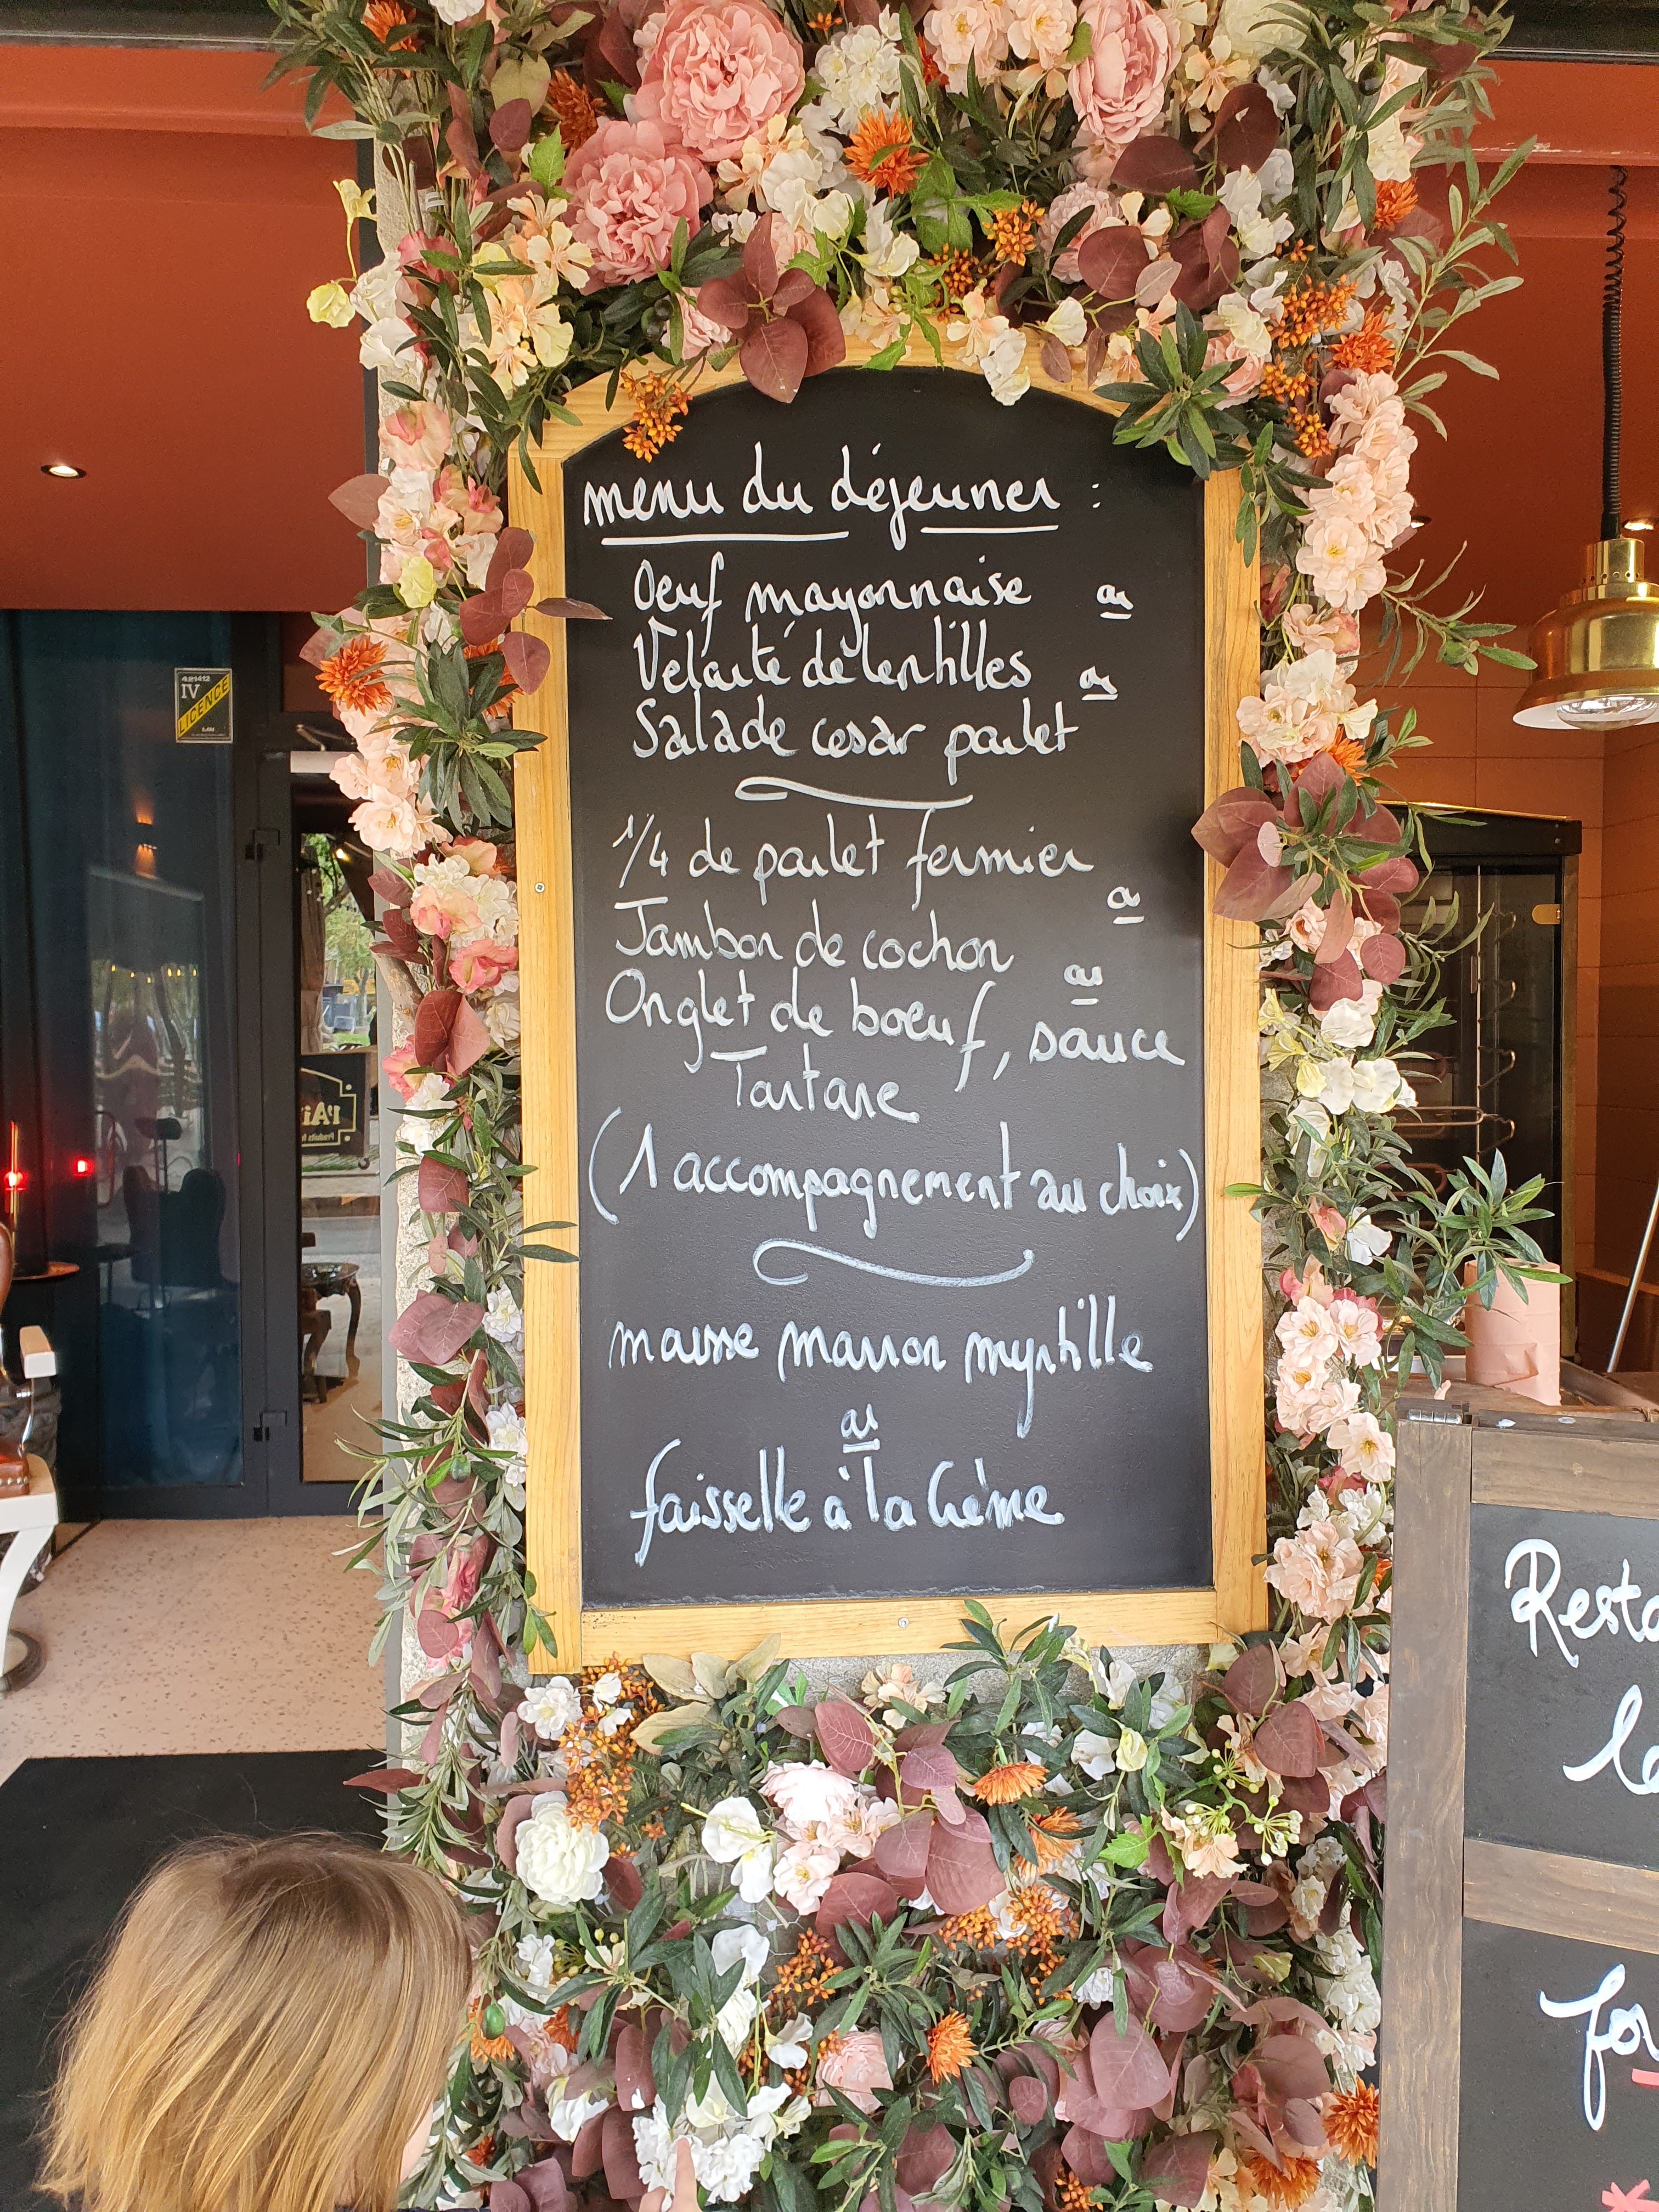 menu du déjeuner :
Oeuf mayonnaise ou
Velouté de lentilles ou
Salade cesar poulet
1/4 de poulet fermier
ou
Jambon de cochon
ou
Onglet de boeuf, sauce
Tartare
(1 accompagnement au choix)
mousse marron myrtille
ou
faisselle à la crème
IV
LICENCE
Resta
le
for